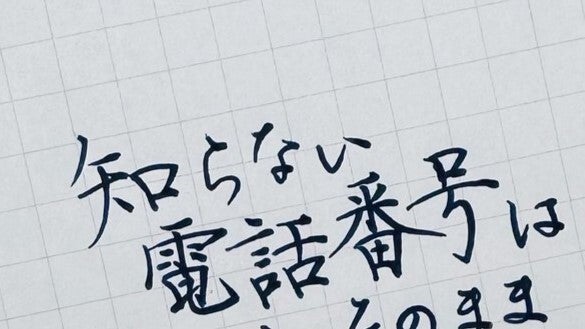 知らない
電話番号は
そのまま